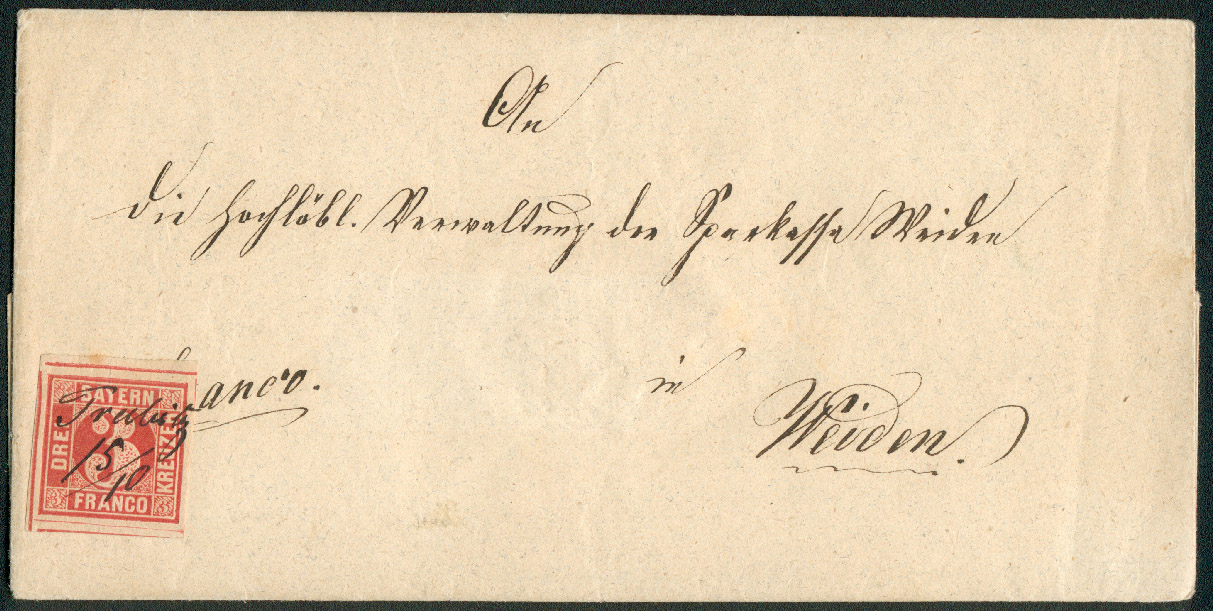 An
die hochlöbl. Verwaltung der Sparkassa Weiden
franco.
in
Weiden.
BAYERN
DREI
KREUZER
3
FRANCO
15/10